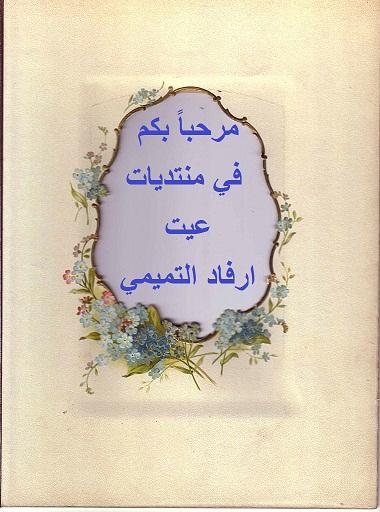 مرحباً بكم
في منتديات
عيت
ارفاد التميمي